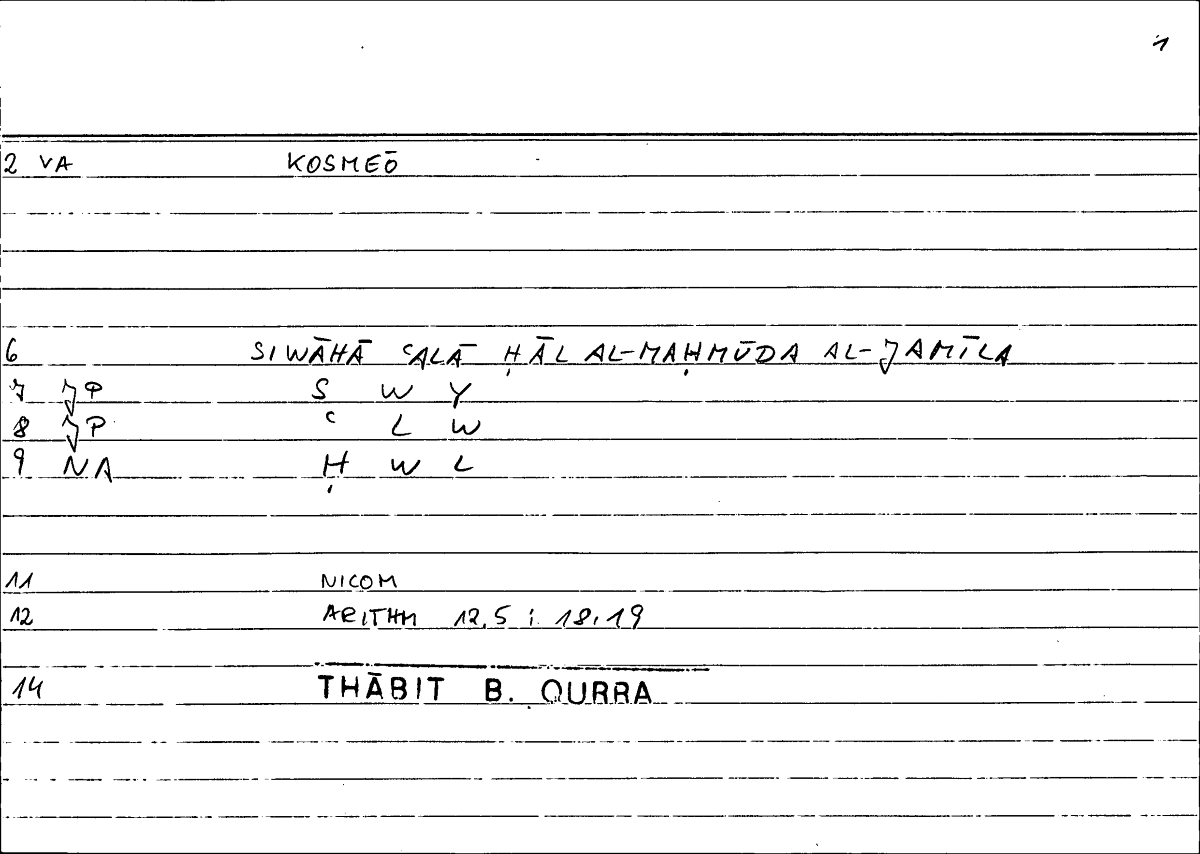 1
2 VA KOSMEŌ
6 SIWĀHĀ ʿALĀ ḤĀL AL-MAḤMŪDA AL-JAMĪLA
7 JP S W Y
8 JP ʿ L W
9 NA Ḥ W L
11 NICOM
12 ARITHM 12.5 ; 18.19
14 THĀBIT B. QURRA